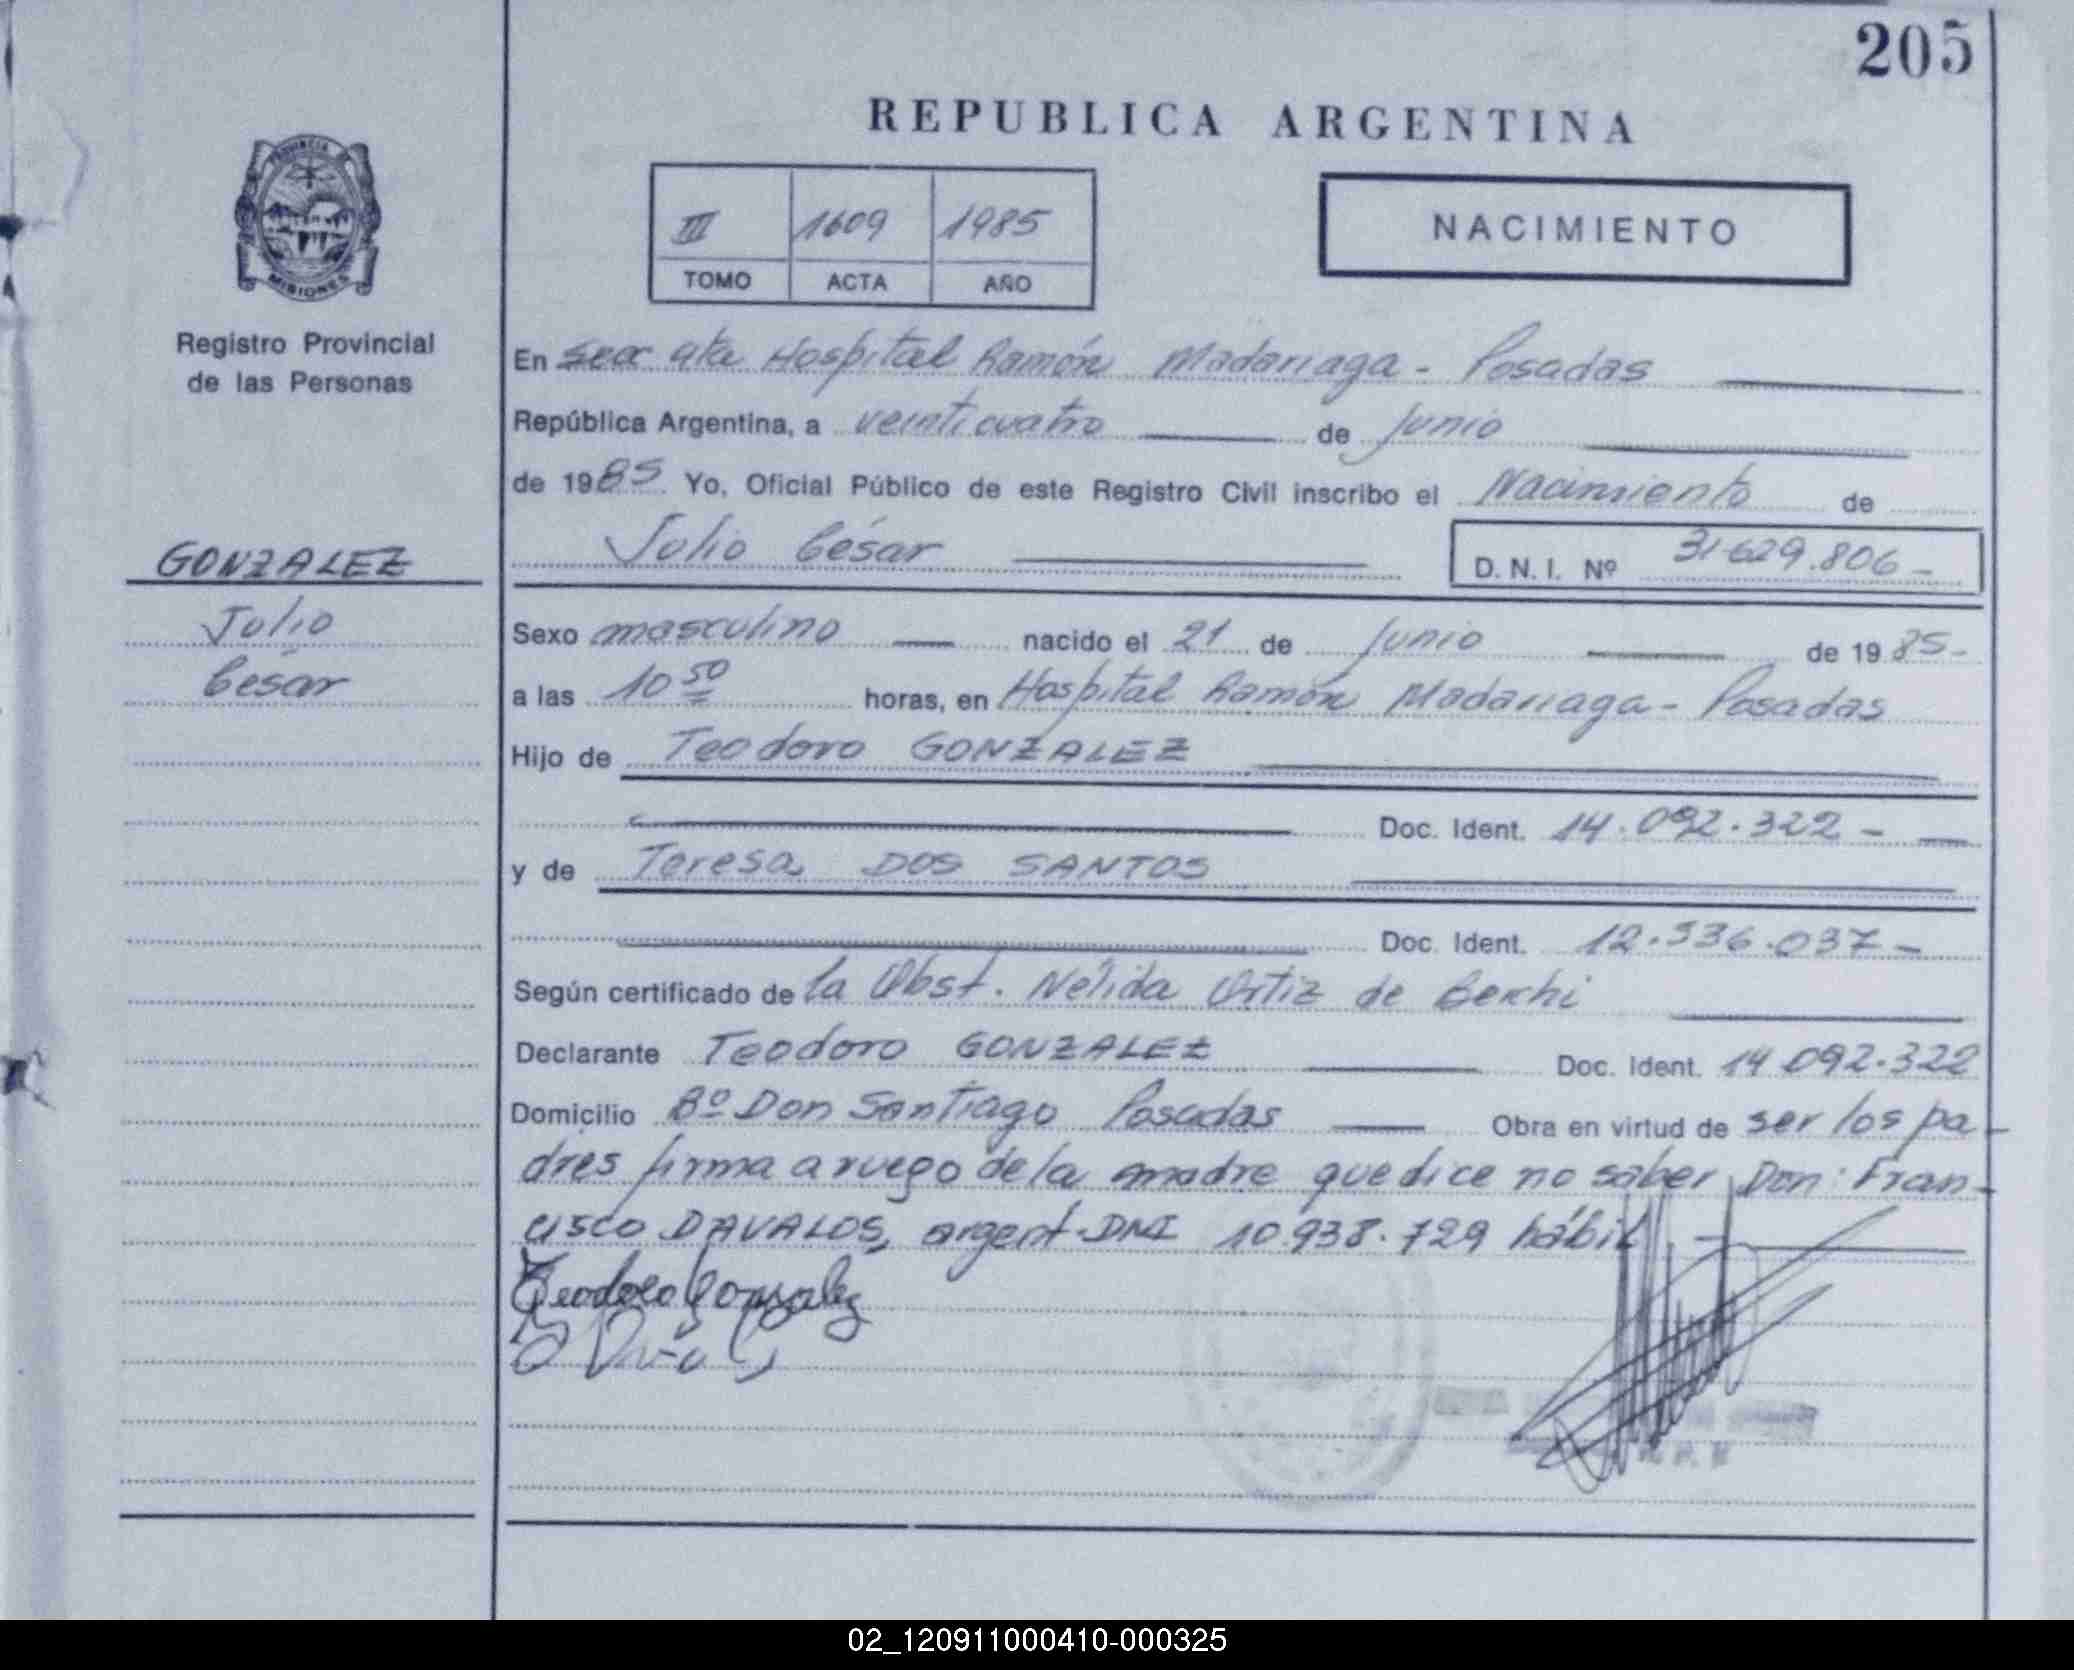 205
REPUBLICA ARGENTINA
PROVINCIA DE
MISIONES
III 1609 1985
TOMO ACTA AÑO
NACIMIENTO
Registro Provincial
de las Personas
En Hospital Ramón Madariaga - Posadas
República Argentina, a veinticuatro de Junio
de 1985 Yo, Oficial Público de este Registro Civil inscribo el Nacimiento de
Julio César D. N. I. Nº 31.629.806-
GONZALEZ
Julio
César
Sexo masculino nacido el 21 de Junio de 1985-
a las 10 50 horas, en Hospital Ramón Madariaga - Posadas
Hijo de Teodoro GONZALEZ
Doc. Ident. 14.092.322-
y de Teresa DOS SANTOS
Doc. Ident. 12.336.037-
Según certificado de la Obst. Nélida Ortiz de
Declarante Teodoro GONZALEZ Doc. Ident. 14 092.322
Domicilio Bº Don Santiago Posadas Obra en virtud de ser los pa-
dres firma a ruego de la madre que dice no saber Don: Fran-
cisco DAVALOS, argent. DNI 10.938.729 hábil.-
Teodoro Gonzalez
02_120911000410-000325